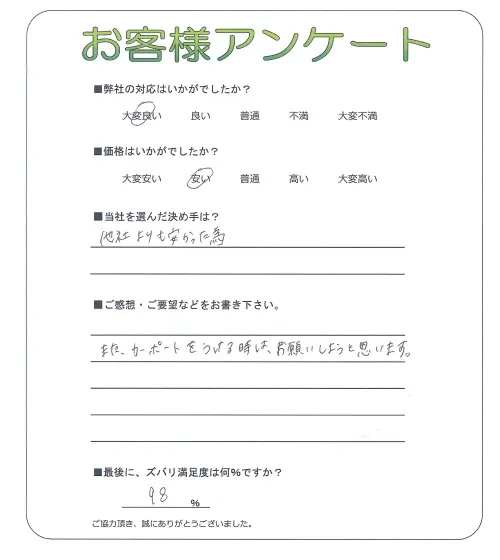 お客様アンケート
■弊社の対応はいかがでしたか？
大変良い 良い 普通 不満 大変不満
■価格はいかがでしたか？
大変安い 安い 普通 高い 大変高い
■当社を選んだ決め手は？
他社よりも安かった為
■ご感想・ご要望などをお書き下さい。
また、カーポートをつける時は、お願いしようと思います。
■最後に、ズバリ満足度は何％ですか？
98 %
ご協力頂き、誠にありがとうございました。